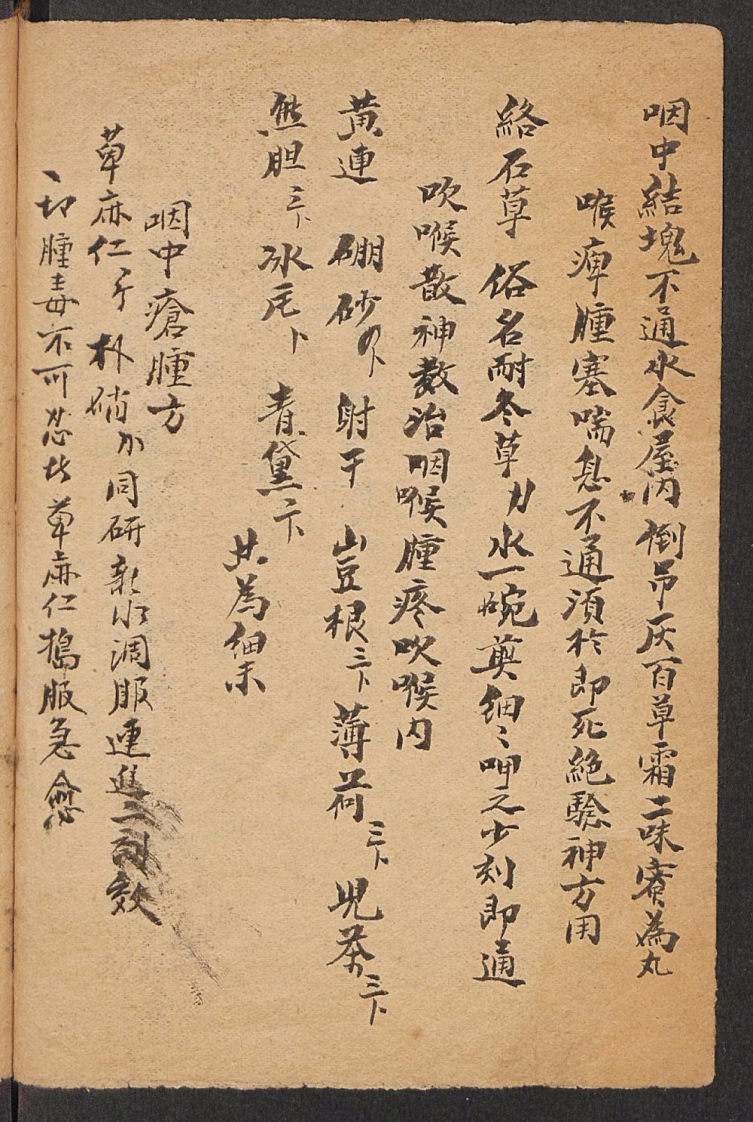 咽中結塊不通水食屋内倒吊灰百草霜二味蜜為丸
喉痺腫塞喘息不通須於即死絶驗神方用
絡石草 俗名耐冬草 水一碗煎細〻呷之少刻即通
吹喉散神效治咽喉腫疼吹喉内
黄連 硼砂 射干 山豆根 薄荷 児茶
熊胆 冰片 青黛
共為細末
咽中瘡腫方
草麻仁 朴硝 同研新水調服連進二三劑效
一切腫毒亦可忍此草麻仁搗服急愈